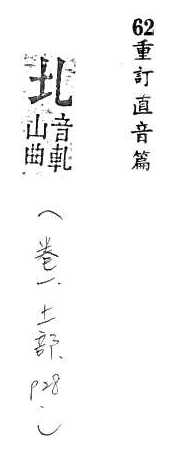 62重訂直音篇
圠
音軋
山曲
(卷一土部、p28.)